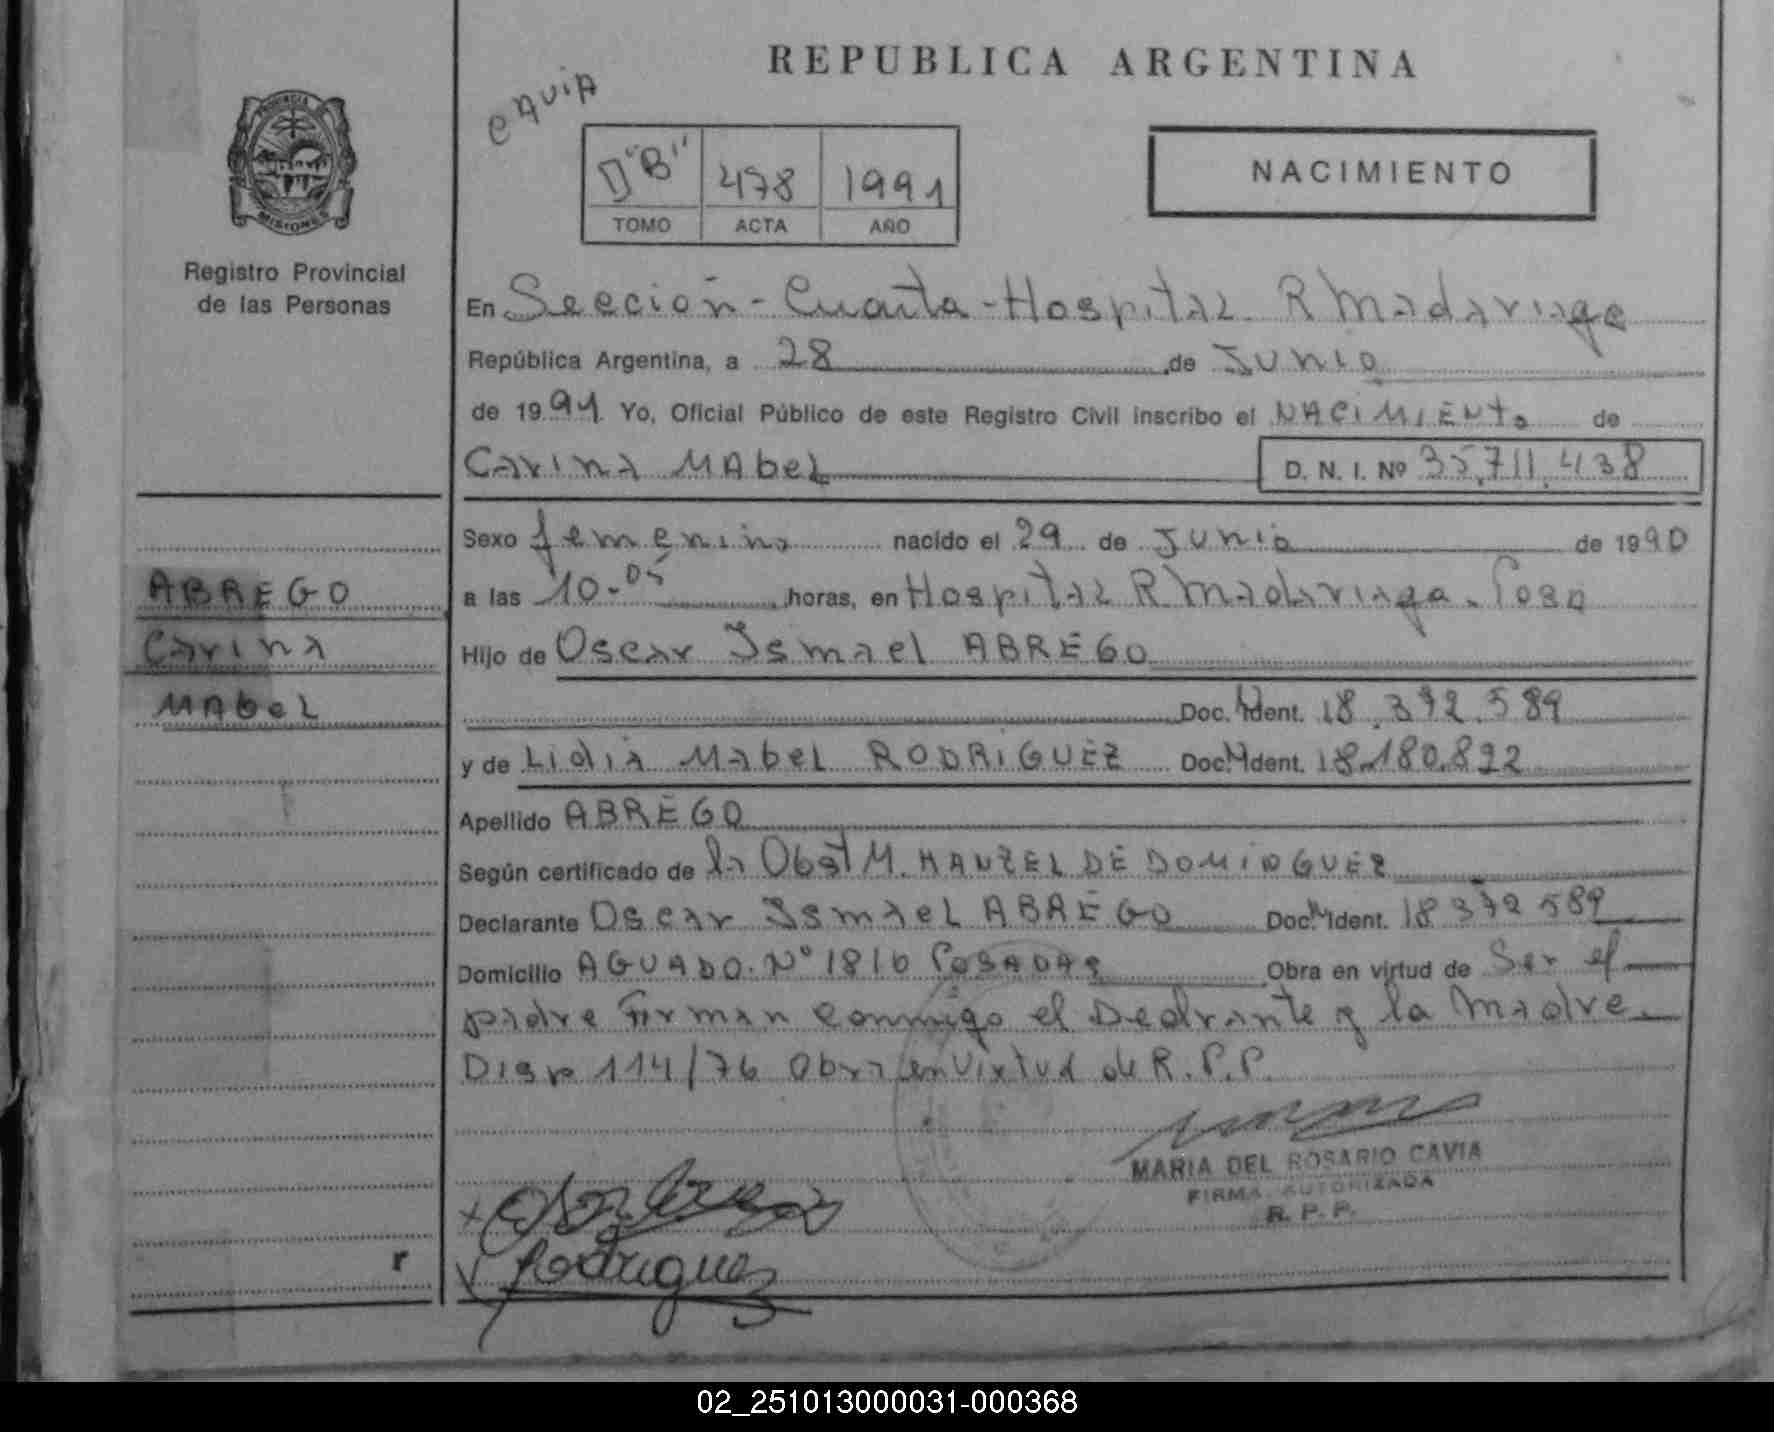 REPUBLICA ARGENTINA
CAVIA
PROVINCIA DE
MISIONES
D"B" 478 1991
TOMO ACTA AÑO
NACIMIENTO
Registro Provincial
de las Personas
En Sección - Cuarta - Hospital R Madariaga
República Argentina, a 28 de Junio
de 1991 Yo, Oficial Público de este Registro Civil inscribo el NACIMIENTO de
Carina MAbel D. N. I. Nº 35.711.438
Sexo femenino nacido el 29 de Junio de 1990
a las 10-05 horas, en Hospital R Madariaga. Posa
Hijo de Oscar Ismael ABREGO
Doc. Ident. 18.372.589
y de Lidia Mabel RODRIGUEZ Doc. Ident. 18.180.822
Apellido ABREGO
Según certificado de la Obst M. HANZEL DE DOMINGUEZ
Declarante Oscar Ismael ABREGO Doc. Ident. 18 372 589
Domicilio AGUADO. Nº 1816 POSADAS Obra en virtud de Ser el
padre Firman conmigo el Declrante y la Madre.
Disp 114/76 Obra en Virtud de R.P.P.
ABREGO
Carina
MAbel
MARIA DEL ROSARIO CAVIA
FIRMA AUTORIZADA
R. P. P.
Rodriguez
r
02_251013000031-000368